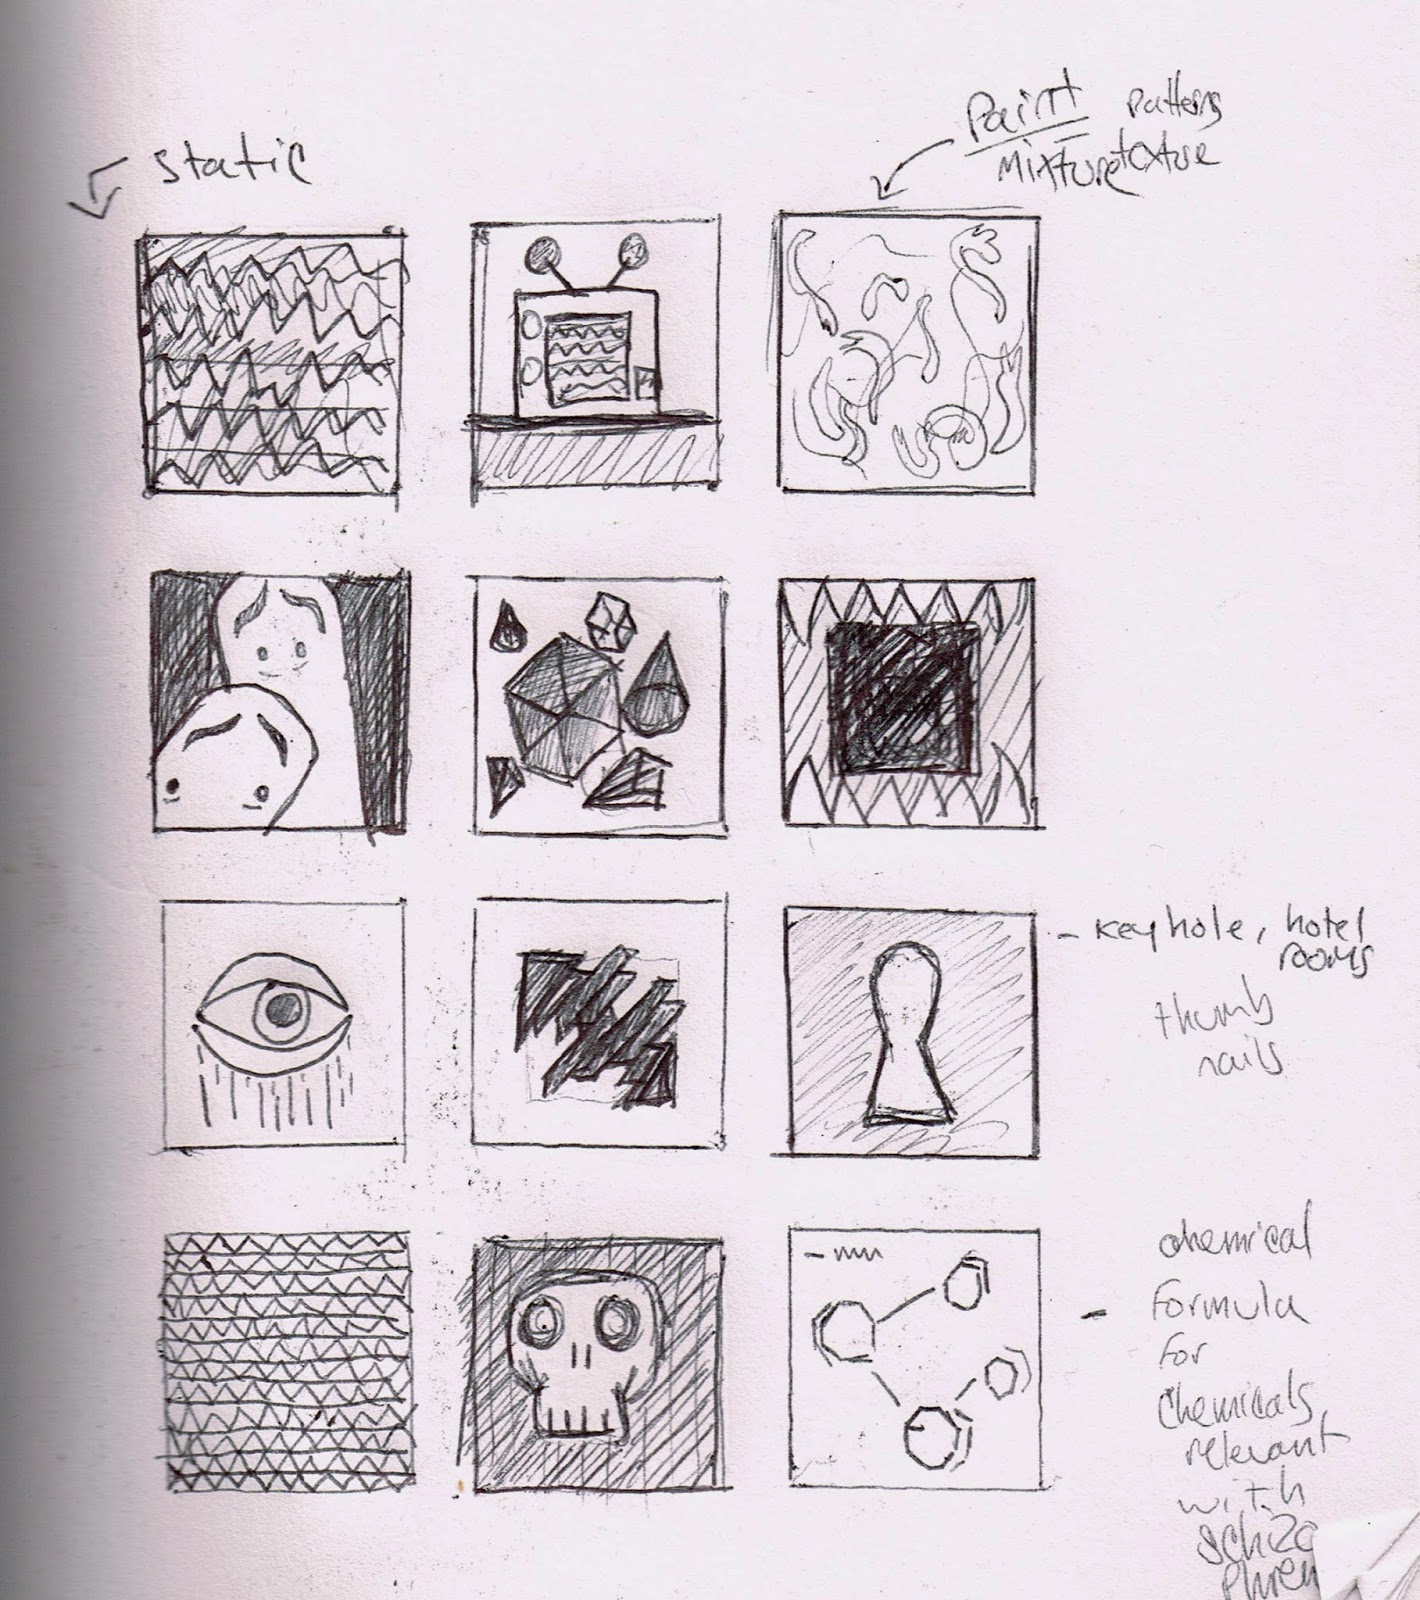 static
Paint patterns
mixture texture
- Keyhole, hotel
rooms
thumb
nails
- chemical
Formula
For
chemicals
relevant
with
schizo
Phren